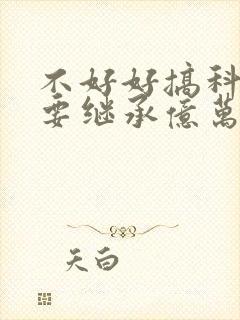 不好好搞科
要继承億萬
天白